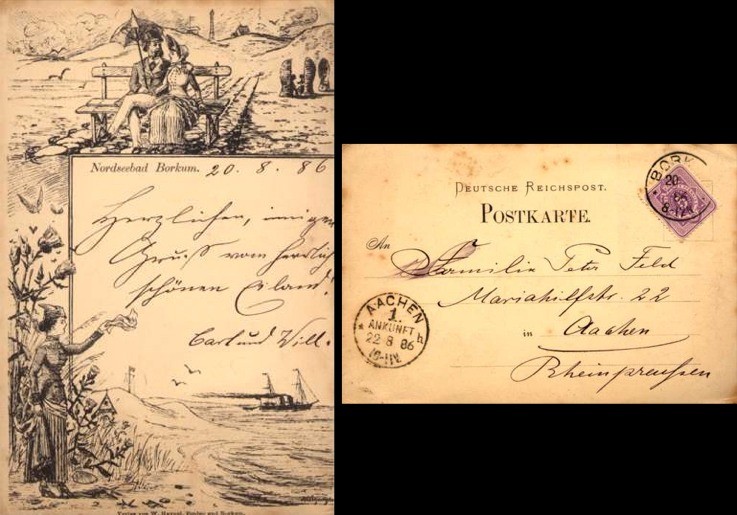 Nordseebad Borkum. 20. 8. 86
Herzlichen, innigen
Gruß vom herrlich
schönen Eiland.
Carl und Will.
Verlag von W. Haynel, Emden und Borkum.
DEUTSCHE REICHSPOST.
POSTKARTE.
BORK
20
86
An
Familie Peter Feld
Mariahilfstr. 22
in Aachen
Rheinpreussen
AACHEN
1.
ANKUNFT
22 8 86